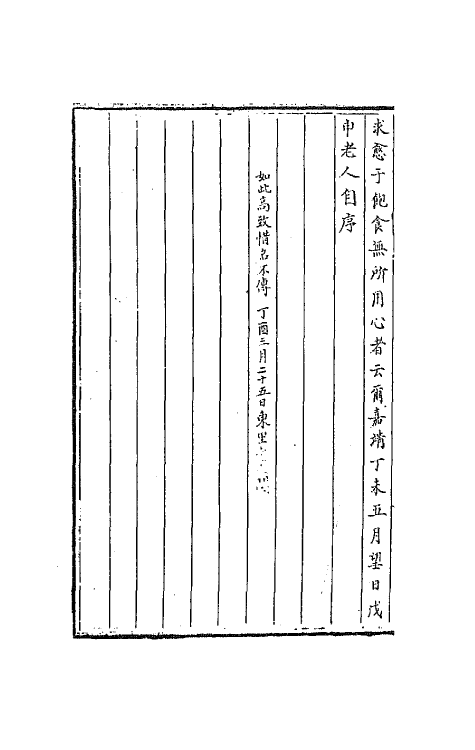 求愈于飽食無所用心者云爾嘉靖丁未五月望日戊
申老人自序
如此高致惜名不傳 丁酉三月二十五日東里